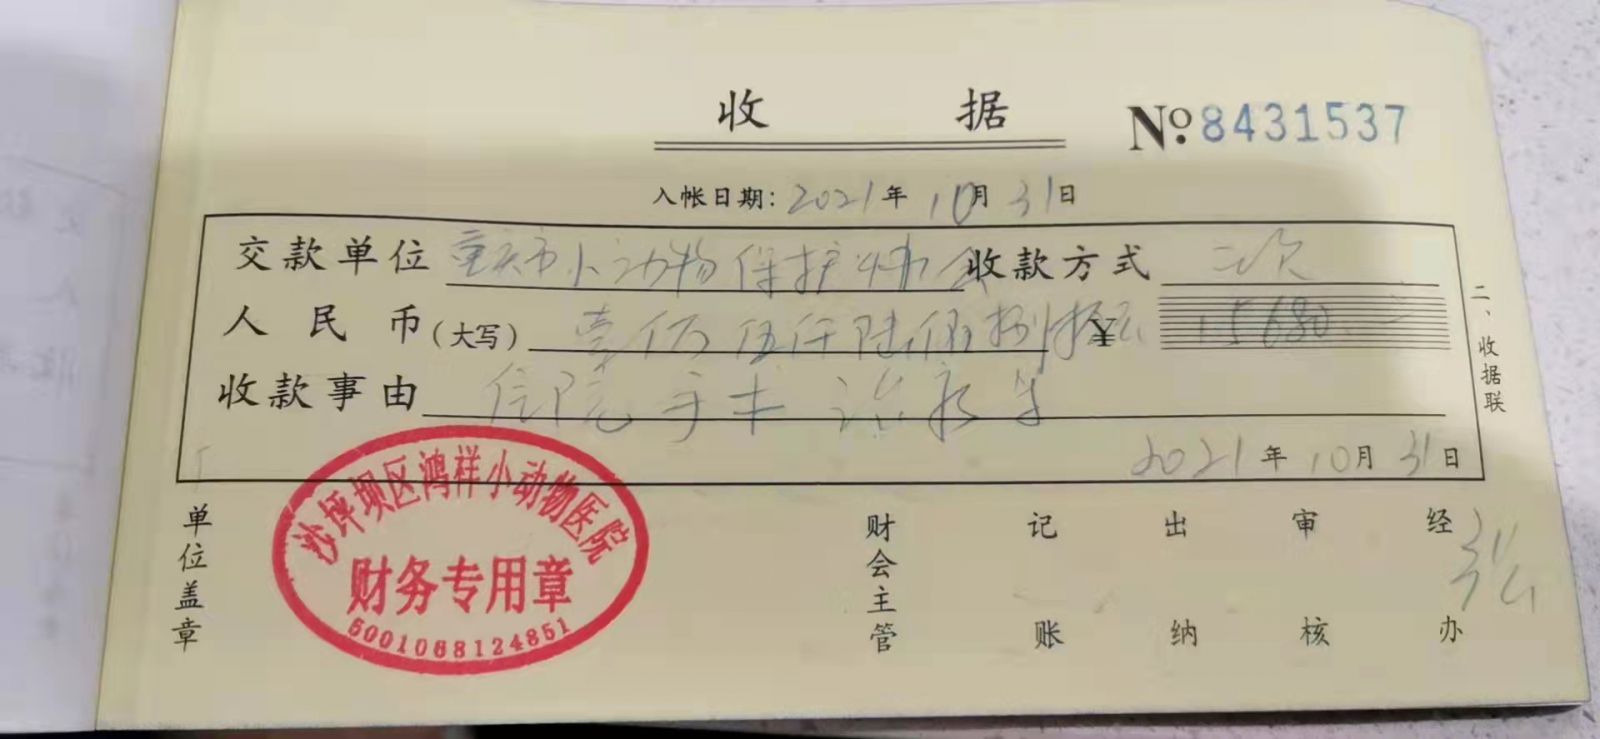 收据
No.8431537
入帐日期：2021年10月31日
交款单位 重庆市小动物保护协会 收款方式 二次
人民币(大写) 壹万伍仟陆佰捌拾元 ¥ 15680
收款事由 住院手术治疗等
2021年10月31日
二、收据联
单位盖章
沙坪坝区鸿样小动物医院
财务专用章
5001068124851
财会主管 记账 出纳 审核 经办